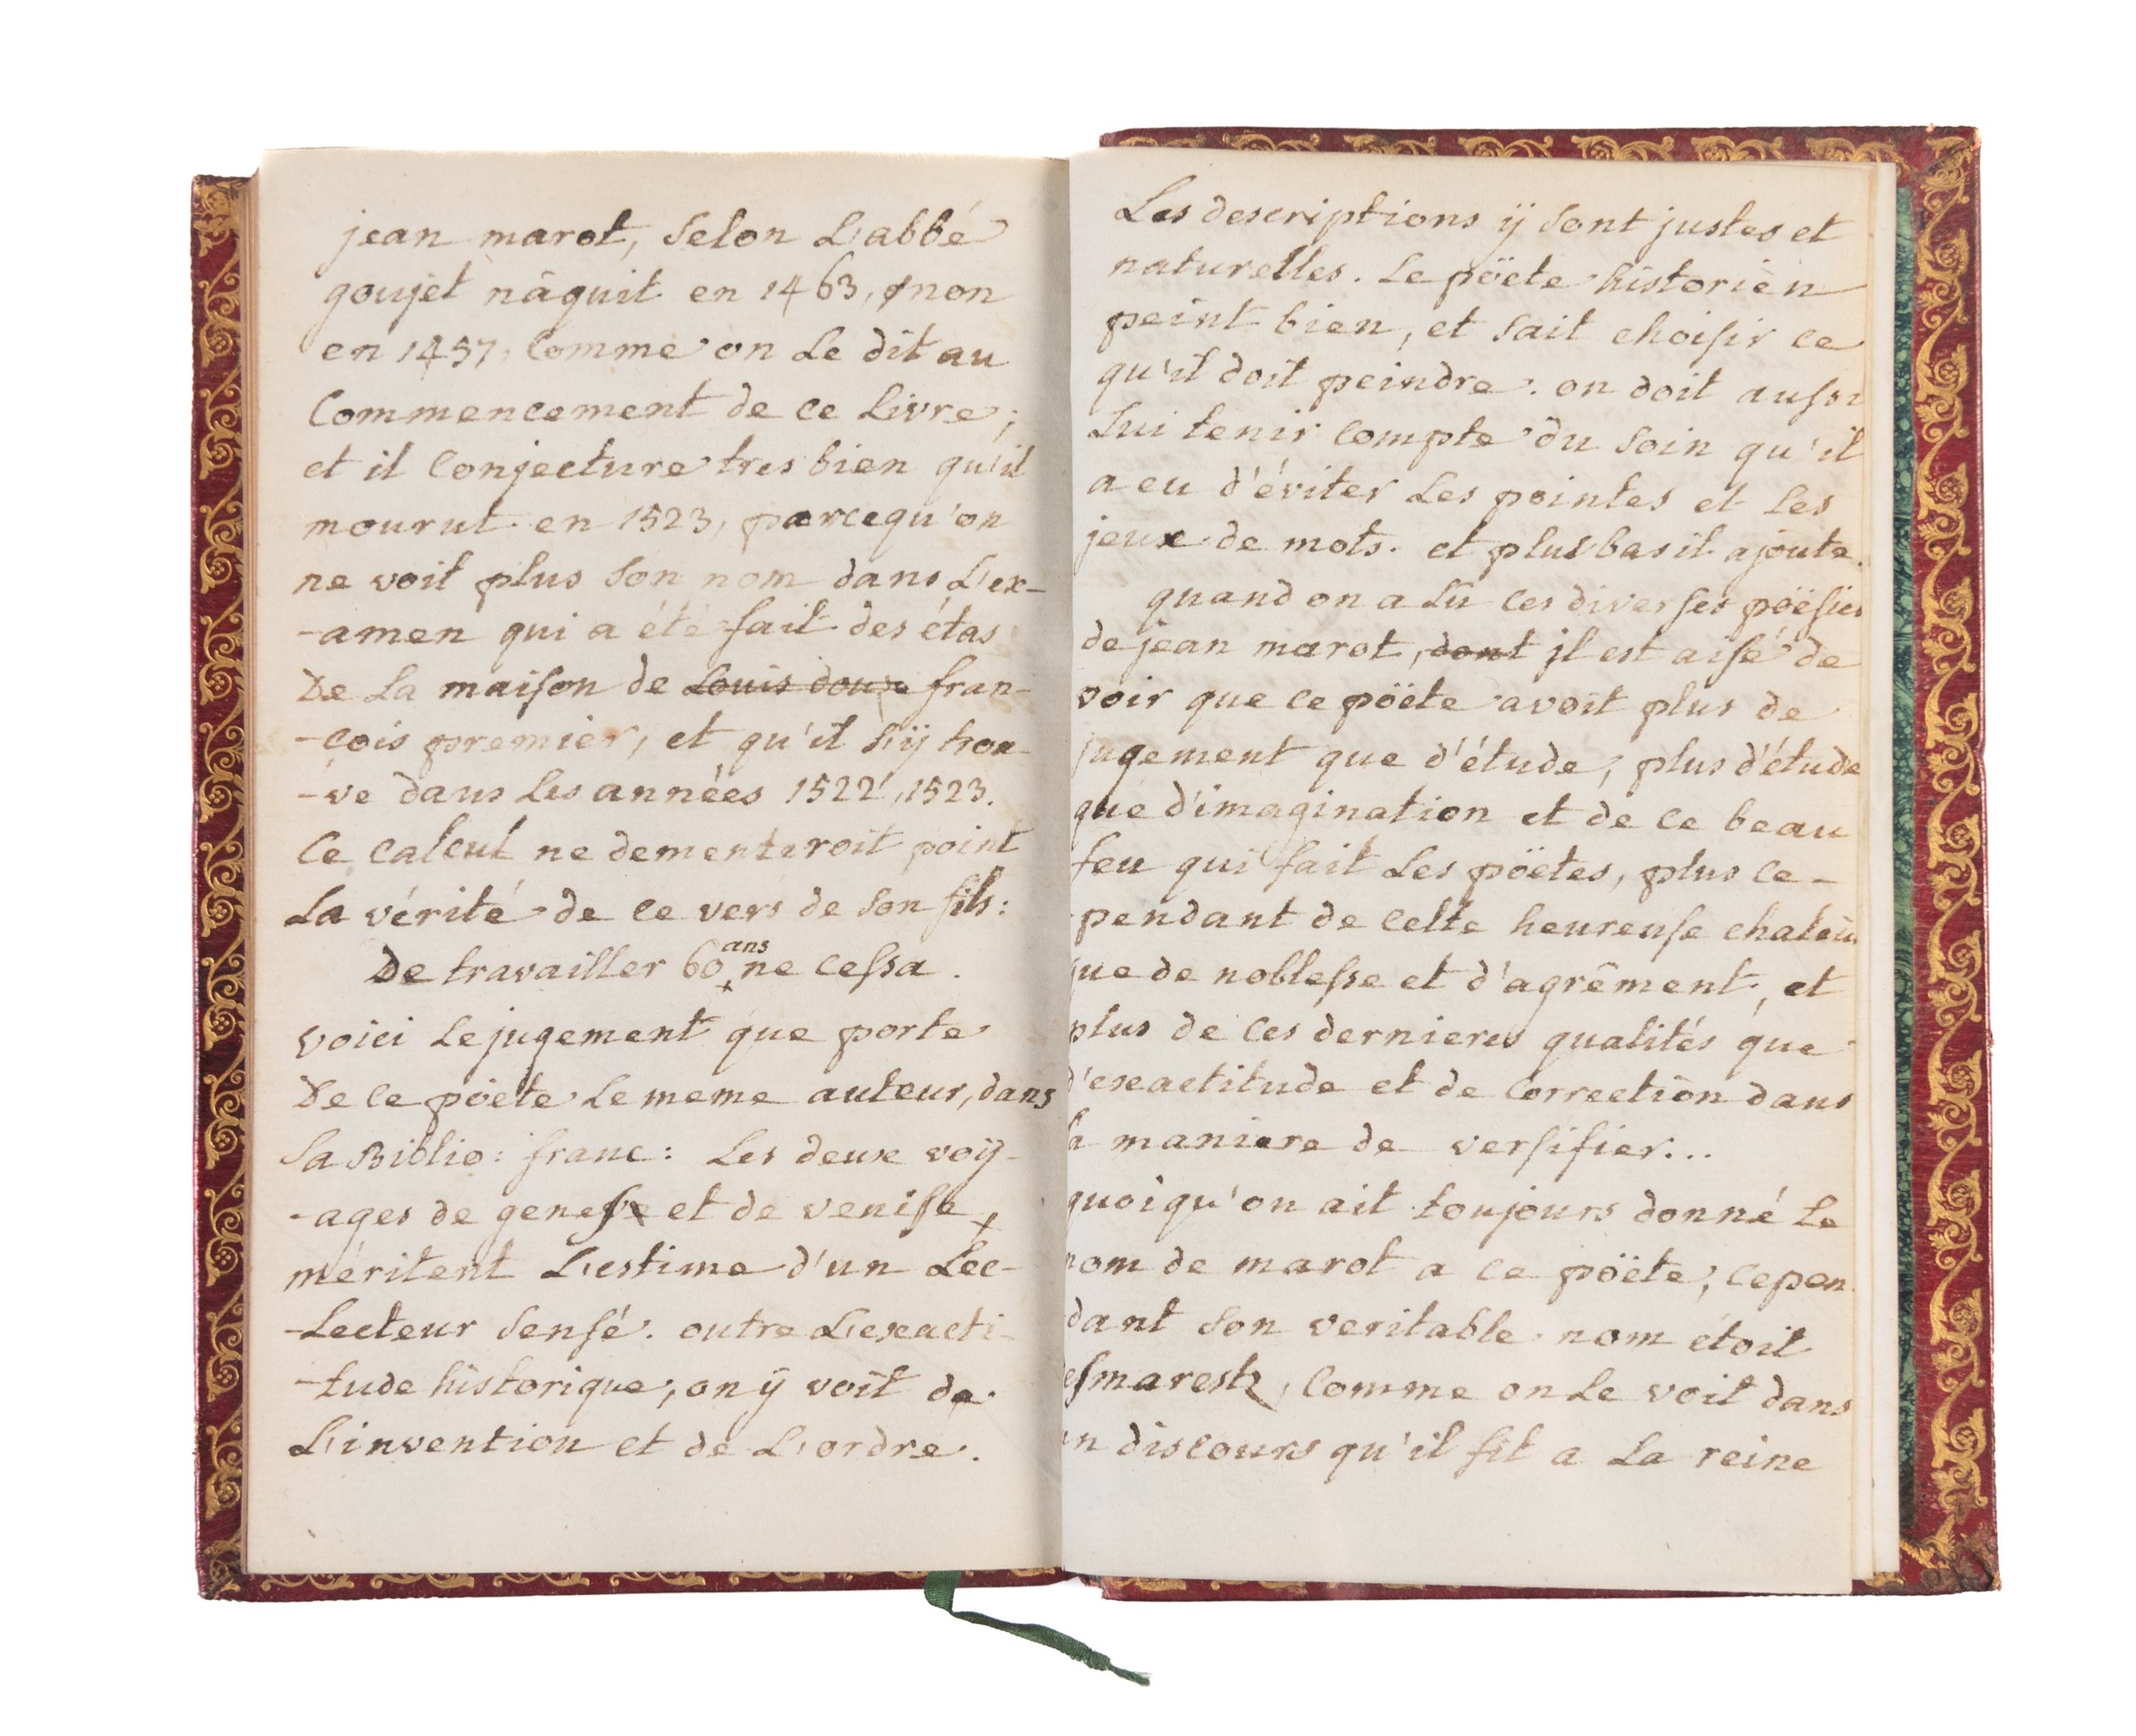 jean marot, selon L'abbé
goujet nâquit en 1463, & non
en 1457, comme on Le dit au
Commencement de ce Livre;
et il Conjecture tres bien qu'il
mourut en 1523, parcequ'on
ne voit plus son nom dans L'ex-
-amen qui a été fait des étas
De La maison de Louis douze fran-
-çois premier, et qu'il s'ÿ trou-
-ve dans Les années 1522, 1523.
Ce calcul ne dementiroit point
La vérité de ce vers de son fils:
De travailler 60 ans ne cessa.
voici Le jugement que porte
De ce poëte Le meme auteur, dans
sa Biblio: franc: Les deux voÿ-
-ages de genes et de venise,
méritent L'estime d'un Lec-
-Lecteur sensé. outre L'exacti-
-tude historique, on ÿ voit de
L'invention et de L'ordre.
Les descriptions ÿ sont justes et
naturelles. Le pöete historien
peint bien, et sait choisir ce
qu'il doit peindre. on doit aussi
Lui tenir compte du soin qu'il
a eu d'éviter Les pointes et Les
jeux de mots. et plus bas il ajoute.
quand on a Lû ces diverses pöësies
de jean marot, dont il est aisé de
voir que ce pöete avoit plus de
jugement que d'étude, plus d'étude
que d'imagination et de ce beau
feu qui fait Les pöetes, plus ce-
-pendant de cette heureuse chaleur
que de noblesse et d'agrêment, et
plus de ces dernieres qualités que
d'exactitude et de Correction dans
la maniere de versifier...
quoiqu'on ait toujours donné Le
nom de marot a ce pöete, cepen
dant son veritable nom étoit
desmarestz, Comme on Le voit dans
un discours qu'il fit a La reine